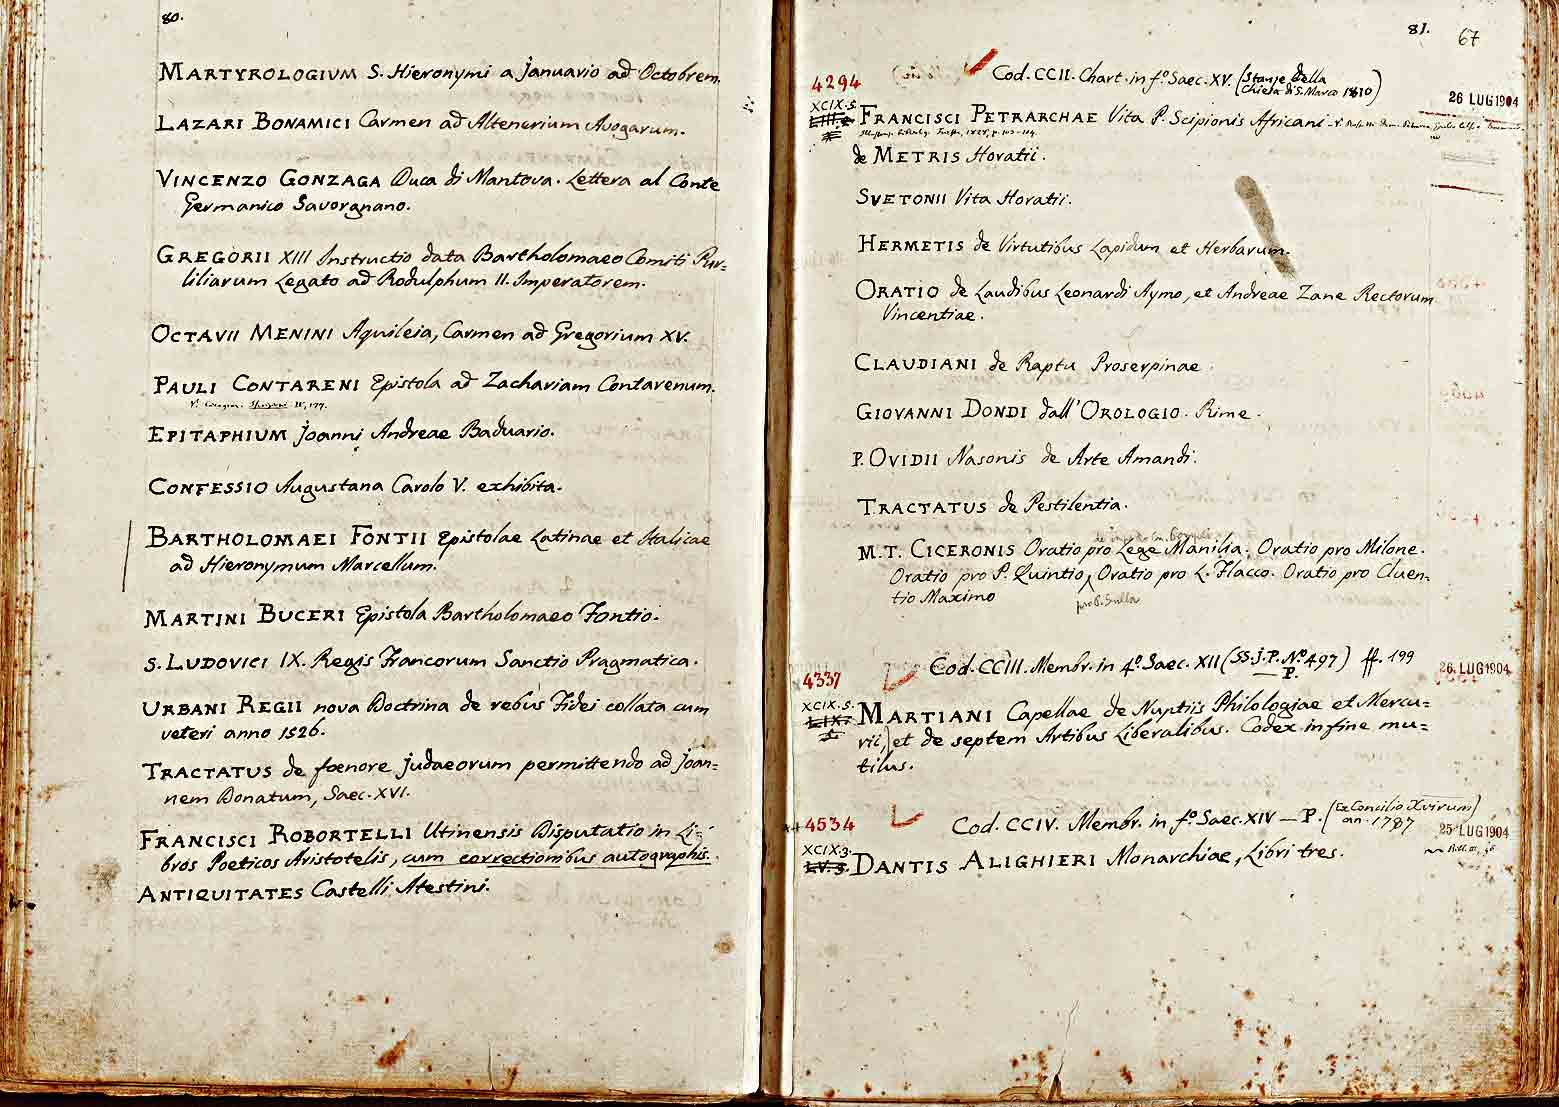 80.
MARTYROLOGIUM S. Hieronymi a Januario ad Octobrem.
LAZARI BONAMICI Carmen ad Altenerium Avogarum.
VINCENZO GONZAGA Duca di Mantova. Lettera al Conte
Germanico Savorgnano.
GREGORII XIII Instructio data Bartholomaeo Comiti Pur-
liliarum Legato ad Rodulphum II. Imperatorem.
OCTAVII MENINI Aquileia, Carmen ad Gregorium XV.
PAULI CONTARENI Epistola ad Zachariam Contarenum.
IV, 177.
EPITAPHIUM Joanni Andreae Baduario.
CONFESSIO Augustana Carolo V. exhibita.
BARTHOLOMAEI FONTII Epistolae Latinae et Italicae
ad Hieronymum Marcellum.
MARTINI BUCERI Epistola Bartholomaeo Fontio.
S. LUDOVICI IX. Regis Francorum Sanctio Pragmatica.
URBANI REGII nova Doctrina de rebus Fidei collata cum
veteri anno 1526.
TRACTATUS de foenore Judaeorum permittendo ad Joan=
nem Donatum, Saec. XVI.
FRANCISCI ROBORTELLI Utinensis Disputatio in Li=
bros Poeticos Aristotelis, cum correctionibus autographis.
ANTIQUITATES Castelli Atestini.
81. 67
4294 Cod. CCII. Chart. in fº. Saec. XV. (Stanze della
Chiesa di S. Marco 1810)
26 LUG 1904
XCIX. 5.
FRANCISCI PETRARCHAE Vita P. Scipionis Africani
de METRIS Horatii.
SVETONII Vita Horatii.
HERMETIS de Virtutibus Lapidum et Herbarum.
ORATIO de Laudibus Leonardi Aymo, et Andreae Zane Rectorum
Vincentiae.
CLAUDIANI de Raptu Proserpinae.
GIOVANNI DONDI dall'OROLOGIO. Rime.
P. OVIDII Nasonis de Arte Amandi.
TRACTATUS de Pestilentia.
M. T. CICERONIS Oratio pro Lege Manilia. Oratio pro Milone.
Oratio pro P. Quintio, Oratio pro L. Flacco. Oratio pro Cluen-
tio Maximo
pro P. Sulla
4337 Cod. CCIII. Membr. in 4º. Saec. XII (SS. J. P. Nº. 497) ff. 199
P.
26. LUG 1904
XCIX. 5.
LIX.
MARTIANI Capellae de Nuptiis Philologiae et Mercu=
rii, et de septem Artibus Liberalibus. Codex in fine mu=
tilus.
4534 Cod. CCIV. Membr. in fº. Saec. XIV — P. (Ex Concilio Xvirum)
an. 1787
25 LUG 1904
XCIX. 3.
LV. 3.
DANTIS ALIGHIERI Monarchiae, Libri tres.